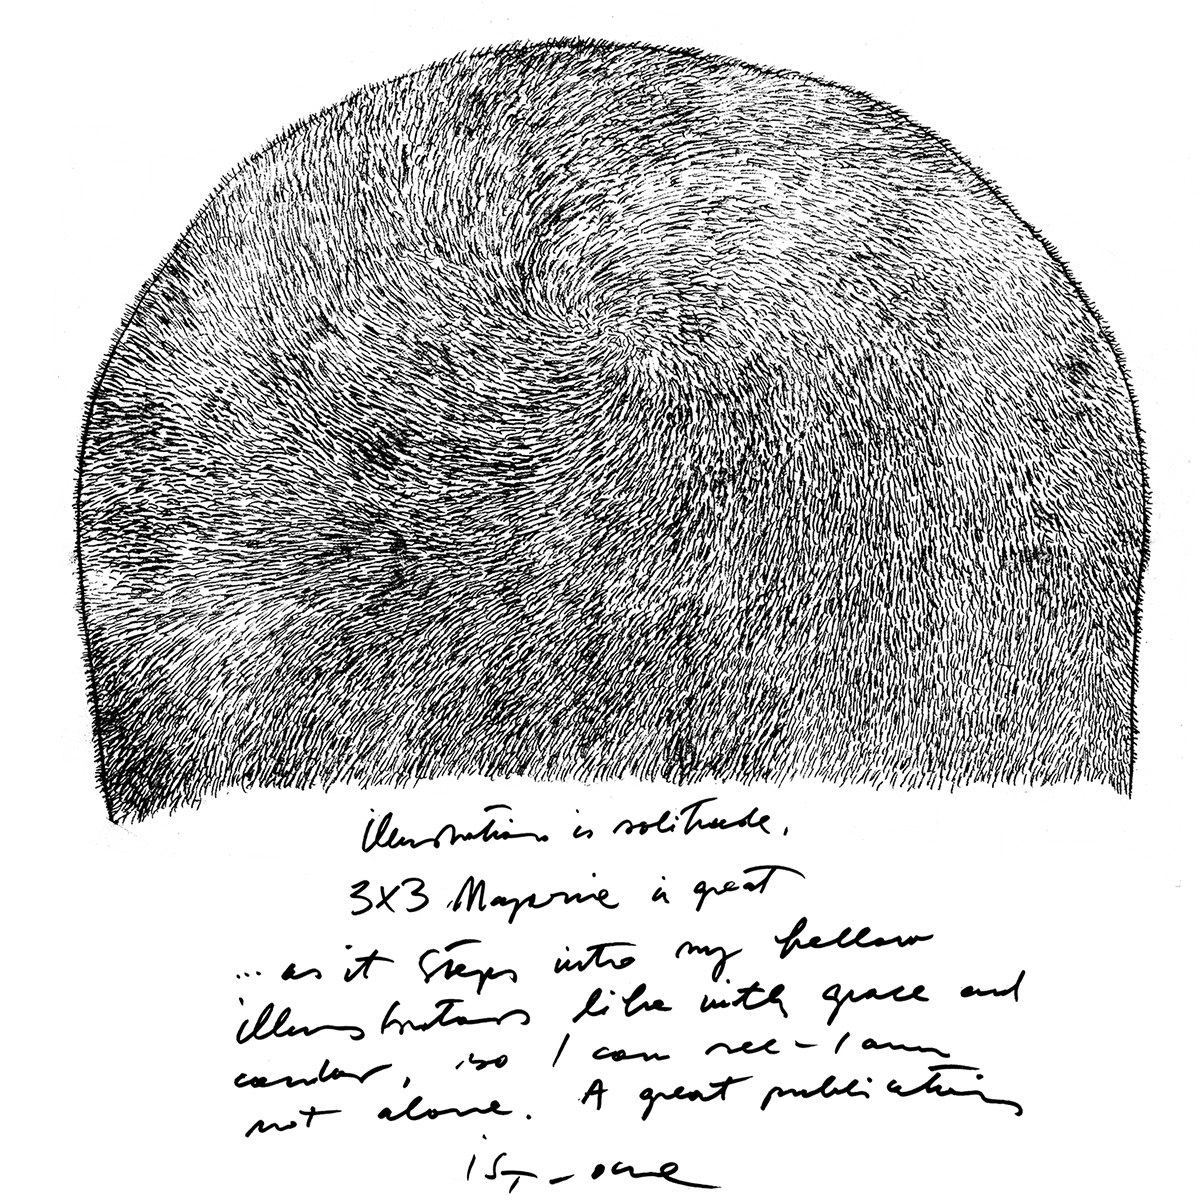 illustration is solitude.
3x3 Magazine is great
... as it steps into my fellow
illustrators life with grace and
candor, so I can see - I am
not alone. A great publication